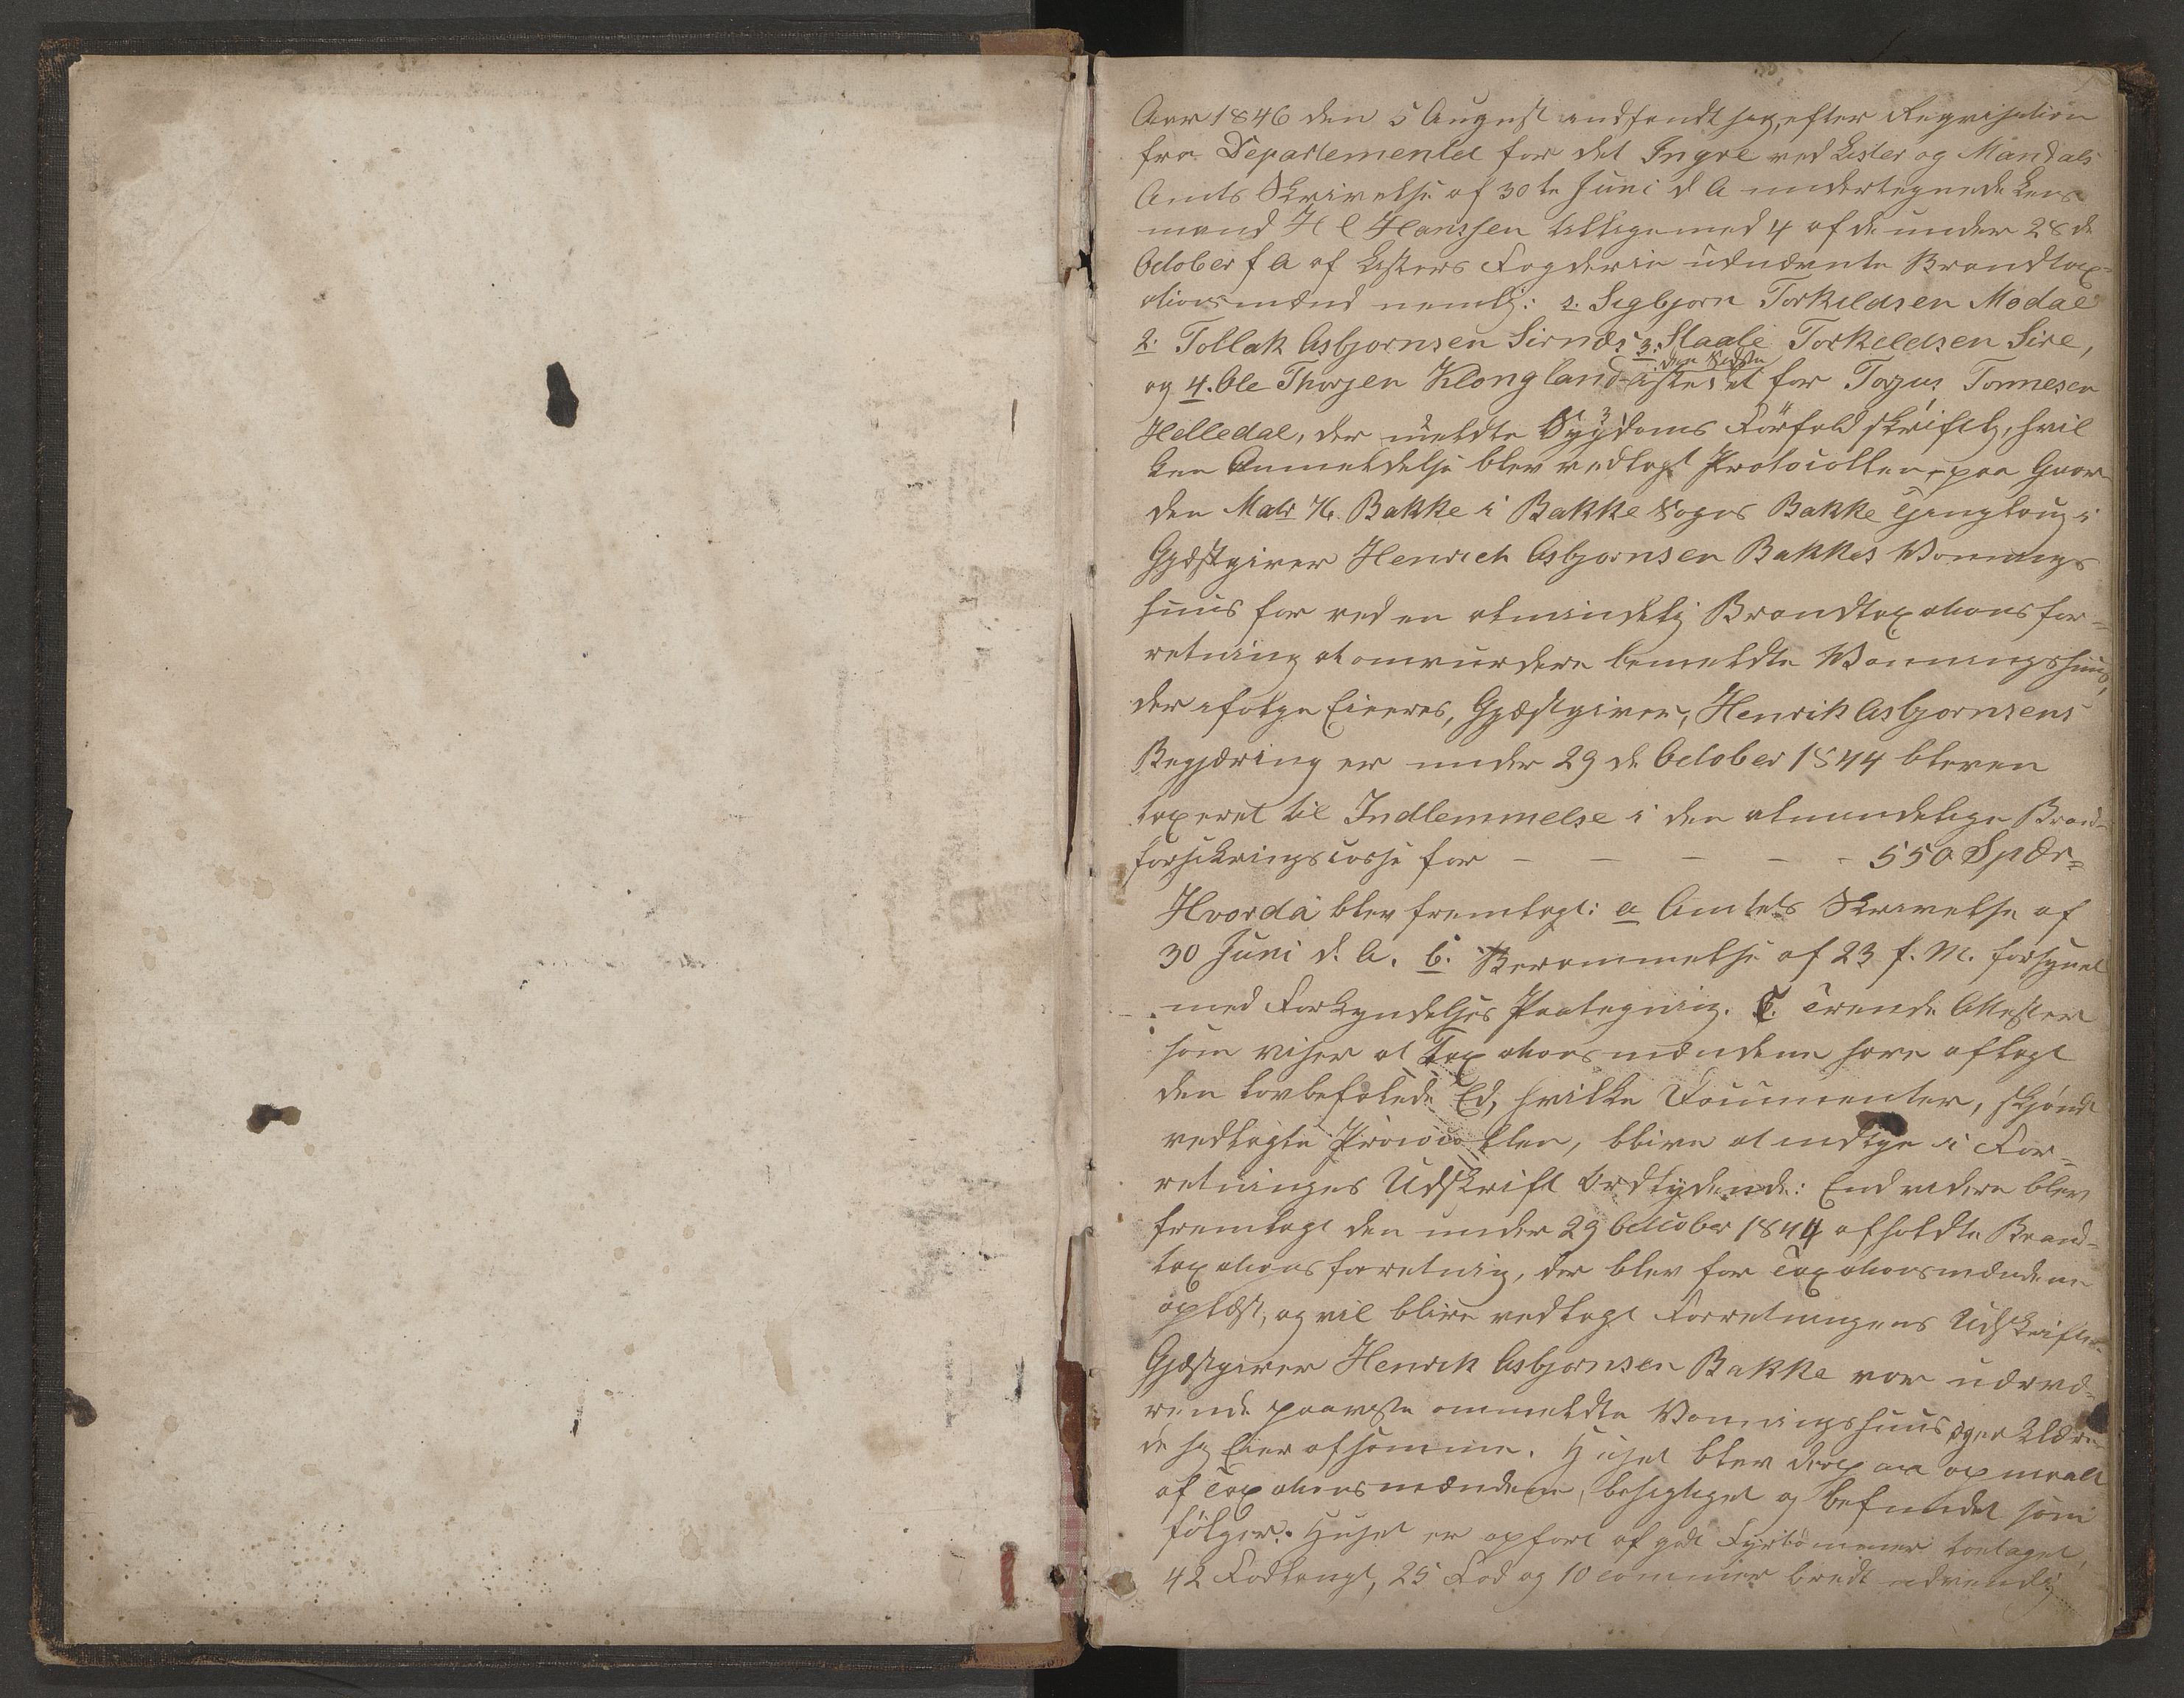 Aar 1846 den 5 August indfandt sig, efter Reqvisition
fra Departementet for det Indre ved Lister og Mandals
Amts Skrivelse af 30te Juni d A undertegnede Lens
mand H C Hanssen tilligemed 4 af de under 28de
October f A af Listers Fogderie udnævnte Brandtax=
ationsmænd nemlig: 1. Sigbjørn Torkildsen Modal
2. Tollak Asbjornsen Sirnæs 3. Staale Torkeldsen Sire,
og 4. Ole Thorsen Klongland den Sidste istedet for Tarjus Tonnesen
Helledal, der meldte Sygdoms Forfald skriftlig, hvil
ken Anmeldelse blev vedlagt Protocollen, paa Gaar
den Matr 76. Bakke i Bakke Sogns Bakke Thinglaug i
Gjæstgiver Henrich Asbjornsen Bakkes Vaanings
huus for ved en almindelig Brandtaxationsfor=
retning at omvurdere bemeldte Vaaningshuus,
der ifølge Eierens, Gjæstgiver, Henrik Asbjornsens
Begjæring er under 29de October 1844 bleven
taxeret til Indlemmelse i den almindelige Brand=
forsikringscasse for – – – – – 550 Spdr=
Hvorda blev fremlagt: a Amtets Skrivelse af
30 Juni d. A. b. Berammelse af 23 f. M. forsynet
med Forkyndelses Paategning. C. Trende Attester
som viser at Taxationsmændene have aflagt
den lovbefalede Ed, hvilke Documenter, skjønt
vedlagte Protocollen, blive at indtage i For=
retninges Udskrift Ordlydende: Endvidere blev
fremlagt den under 29 October 1844 afholdte Brand=
taxationsforretning, der blev for Taxationsmændene
oplæst, og vil blive vedlagt Forretningens Udskrift.
Gjæstgiver Henrik Asbjornsen Bakke var nærvæ=
rende paaviste ommeldte Vaaningshuus, og erklære
de sig Eier af samme. Huset blev derpaa opmaalt
af Taxationsmændene, besigtiget og befundet som
følger: Huset er opført af godt Fyrretømmer toetaget,
42 Fod langt, 25 Fod og 10 Tommer bredt udvendig